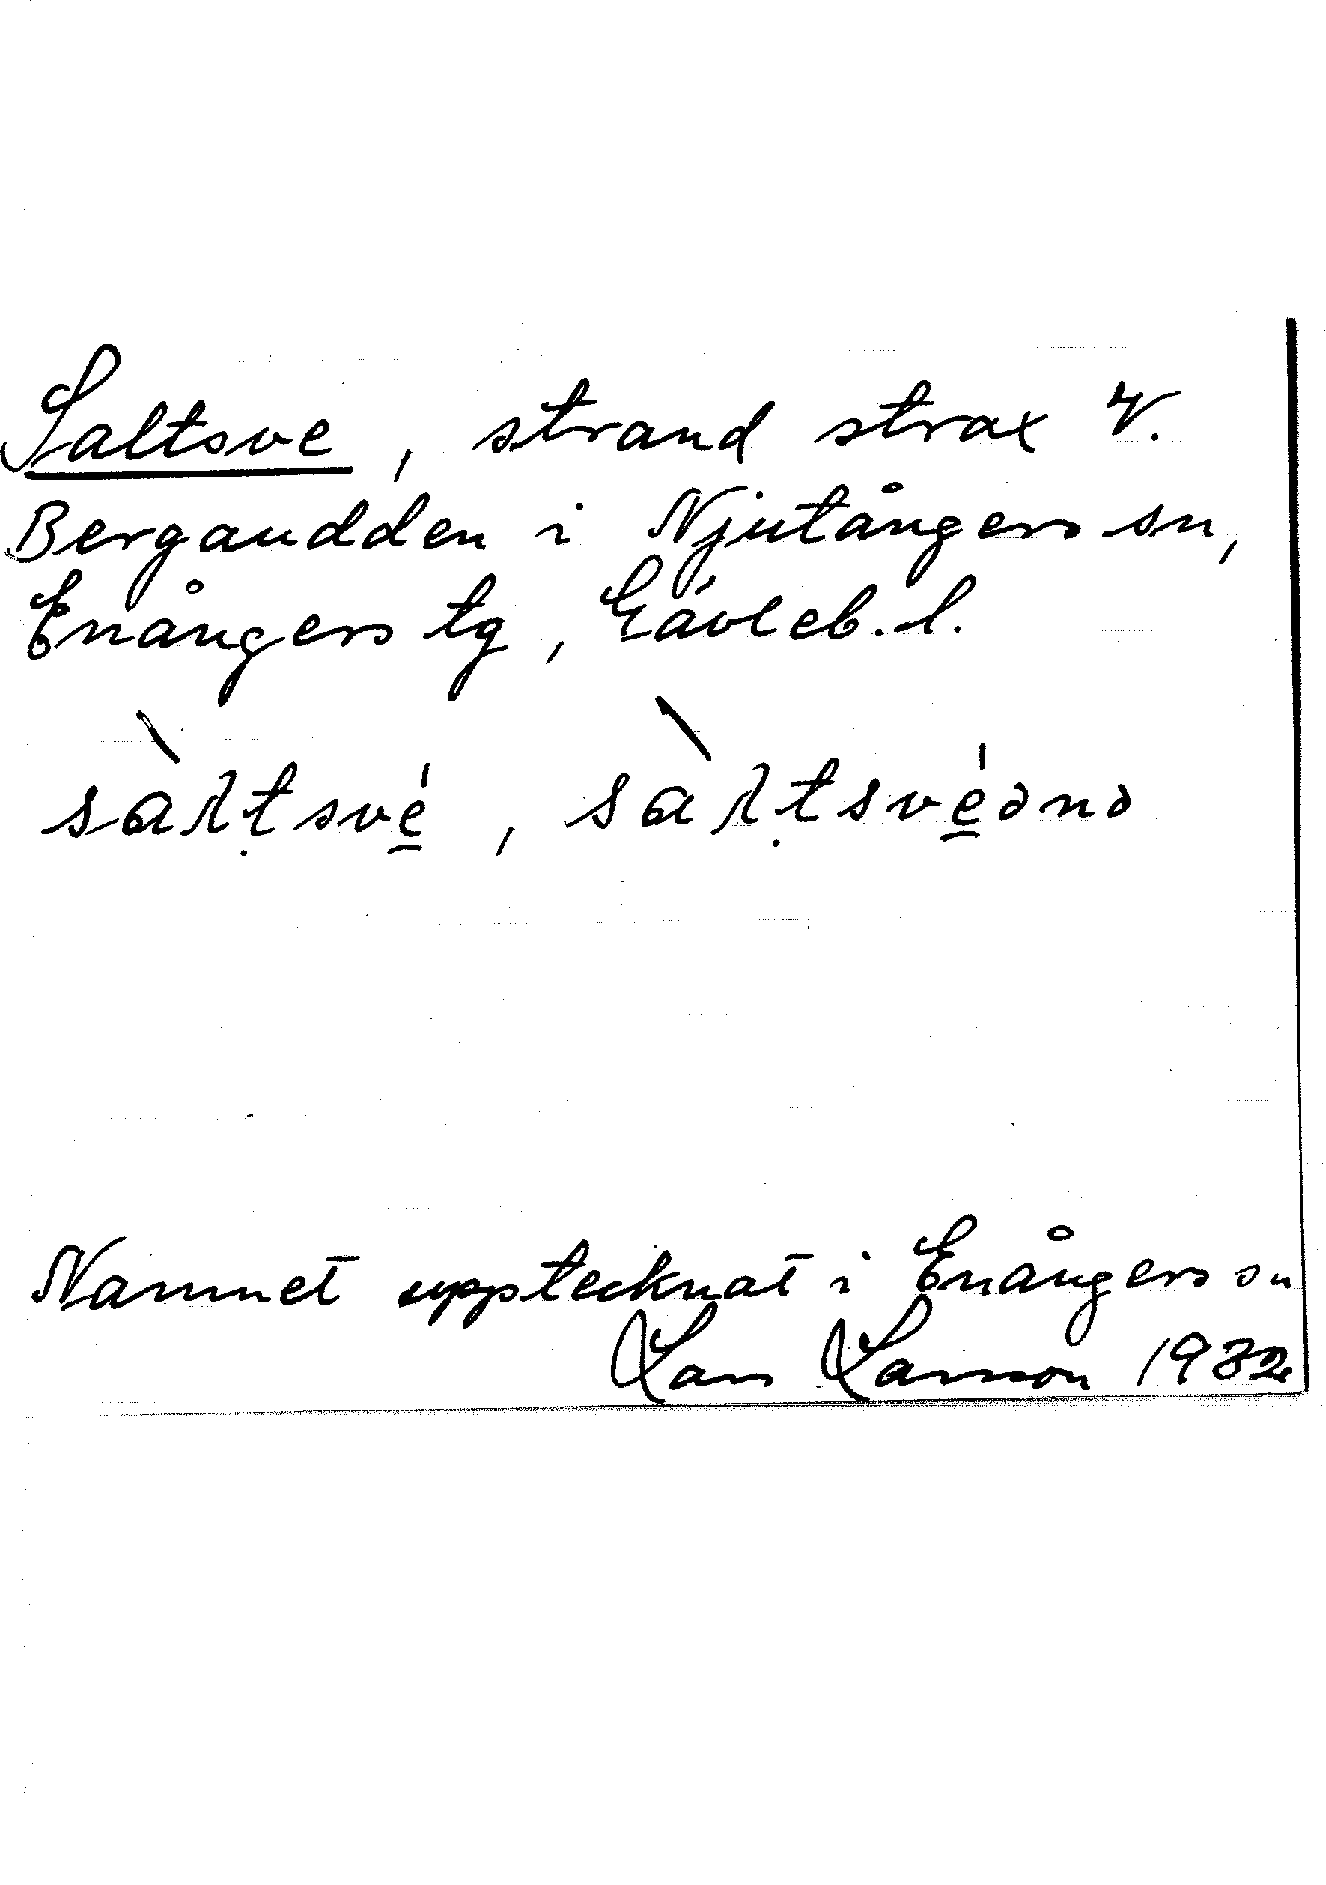 Saltsve, strand strax V.
Bergaudden i Njutångers sn,
Enångers tg, Gävleb. l.
sàltsvé, sàltsvéənə
Namnet upptecknat i Enångers sn
Lars Larsson 1932